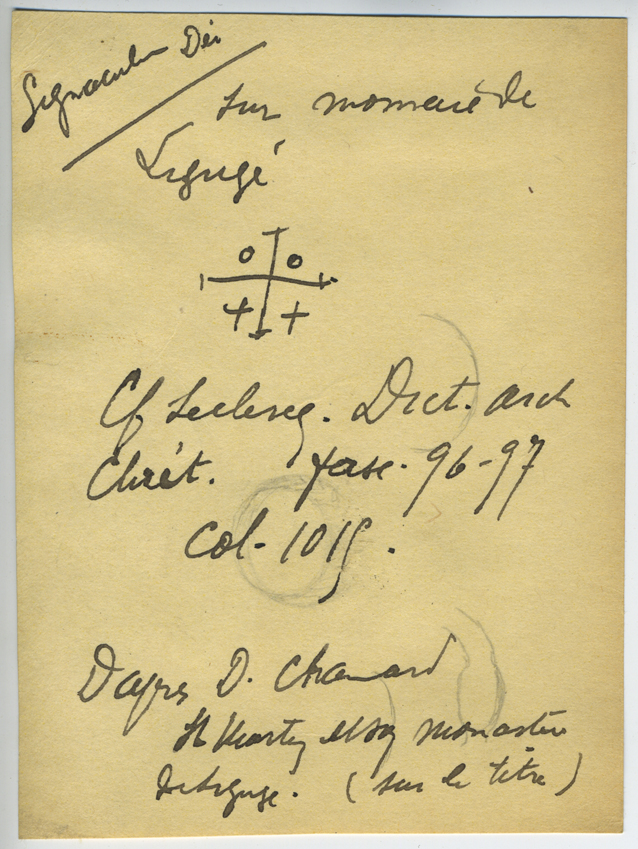 Signaculum Dei
sur monnaie de
Ligugé
Cf Leclercq. Dict. arch
Chrét. fasc. 96-97
Col. 1015.
Dapres D. Chamard
St Martin et son monastère
de Ligugé. (sur le titre)